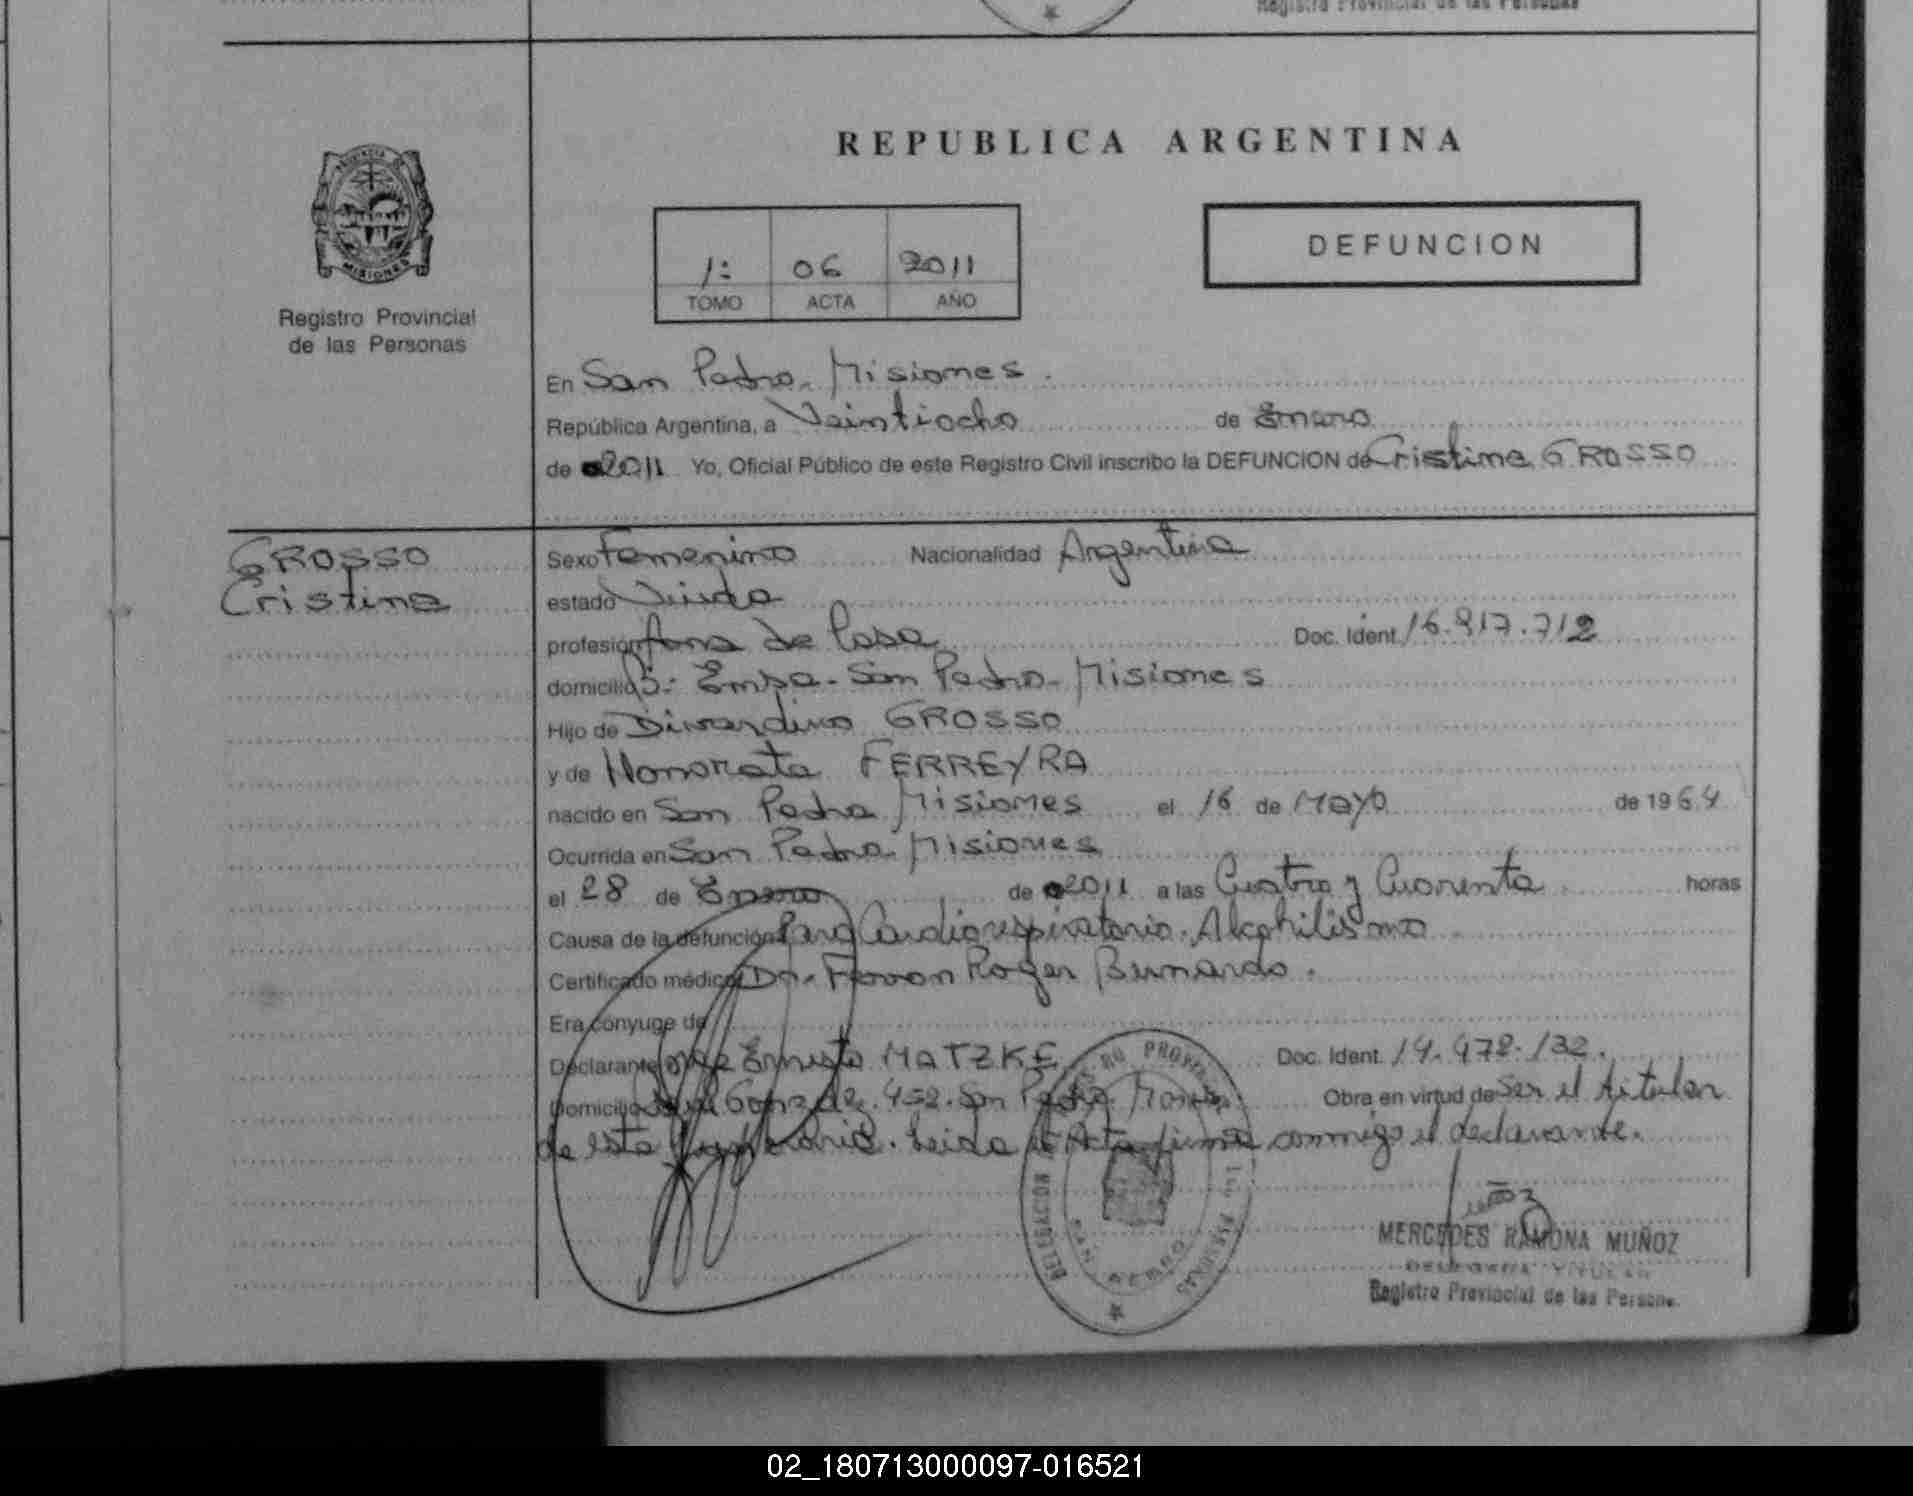 Registro Provincial de las Personas
REPUBLICA ARGENTINA
DEFUNCION
1: 06 2011
TOMO ACTA AÑO
PROVINCIA DE
MISIONES
Registro Provincial
de las Personas
En San Pedro. Misiones.
República Argentina, a Veintiocho de Enero
de 2011 Yo, Oficial Público de este Registro Civil inscribo la DEFUNCION de Cristina GROSSO
GROSSO
Cristina
Sexo Femenino Nacionalidad Argentina
estado Viuda
profesión Ama de Casa Doc. Ident. 16.917.712
domicilio B: Emsa - San Pedro - Misiones
Hijo de GROSSO
y de Honorata FERREYRA
nacido en San Pedro Misiones el 16 de MAYO de 1964
Ocurrida en San Pedro. Misiones
el 28 de Enero de 2011 a las Cuatro y Cuarenta horas
Causa de la defunción Paro Cardiorespiratorio. Alcohilismo
Certificado médico Dr. Roger Bernardo.
Era cónyuge de
Declarante Jorge Ernesto MATZKE Doc. Ident. 14.472.132.
Domicilio Gonzalez. 452. San Pedro. Obra en virtud de Ser el titular
de esta funeraria. Leida el Acta firma conmigo el declarante.
DELEGACION REGISTRO PROVINCIAL DE LAS PERSONAS
SAN PEDRO
MERCEDES RAMONA MUÑOZ
DELEGADA TITULAR
Registro Provincial de las Persona.
02_180713000097-016521